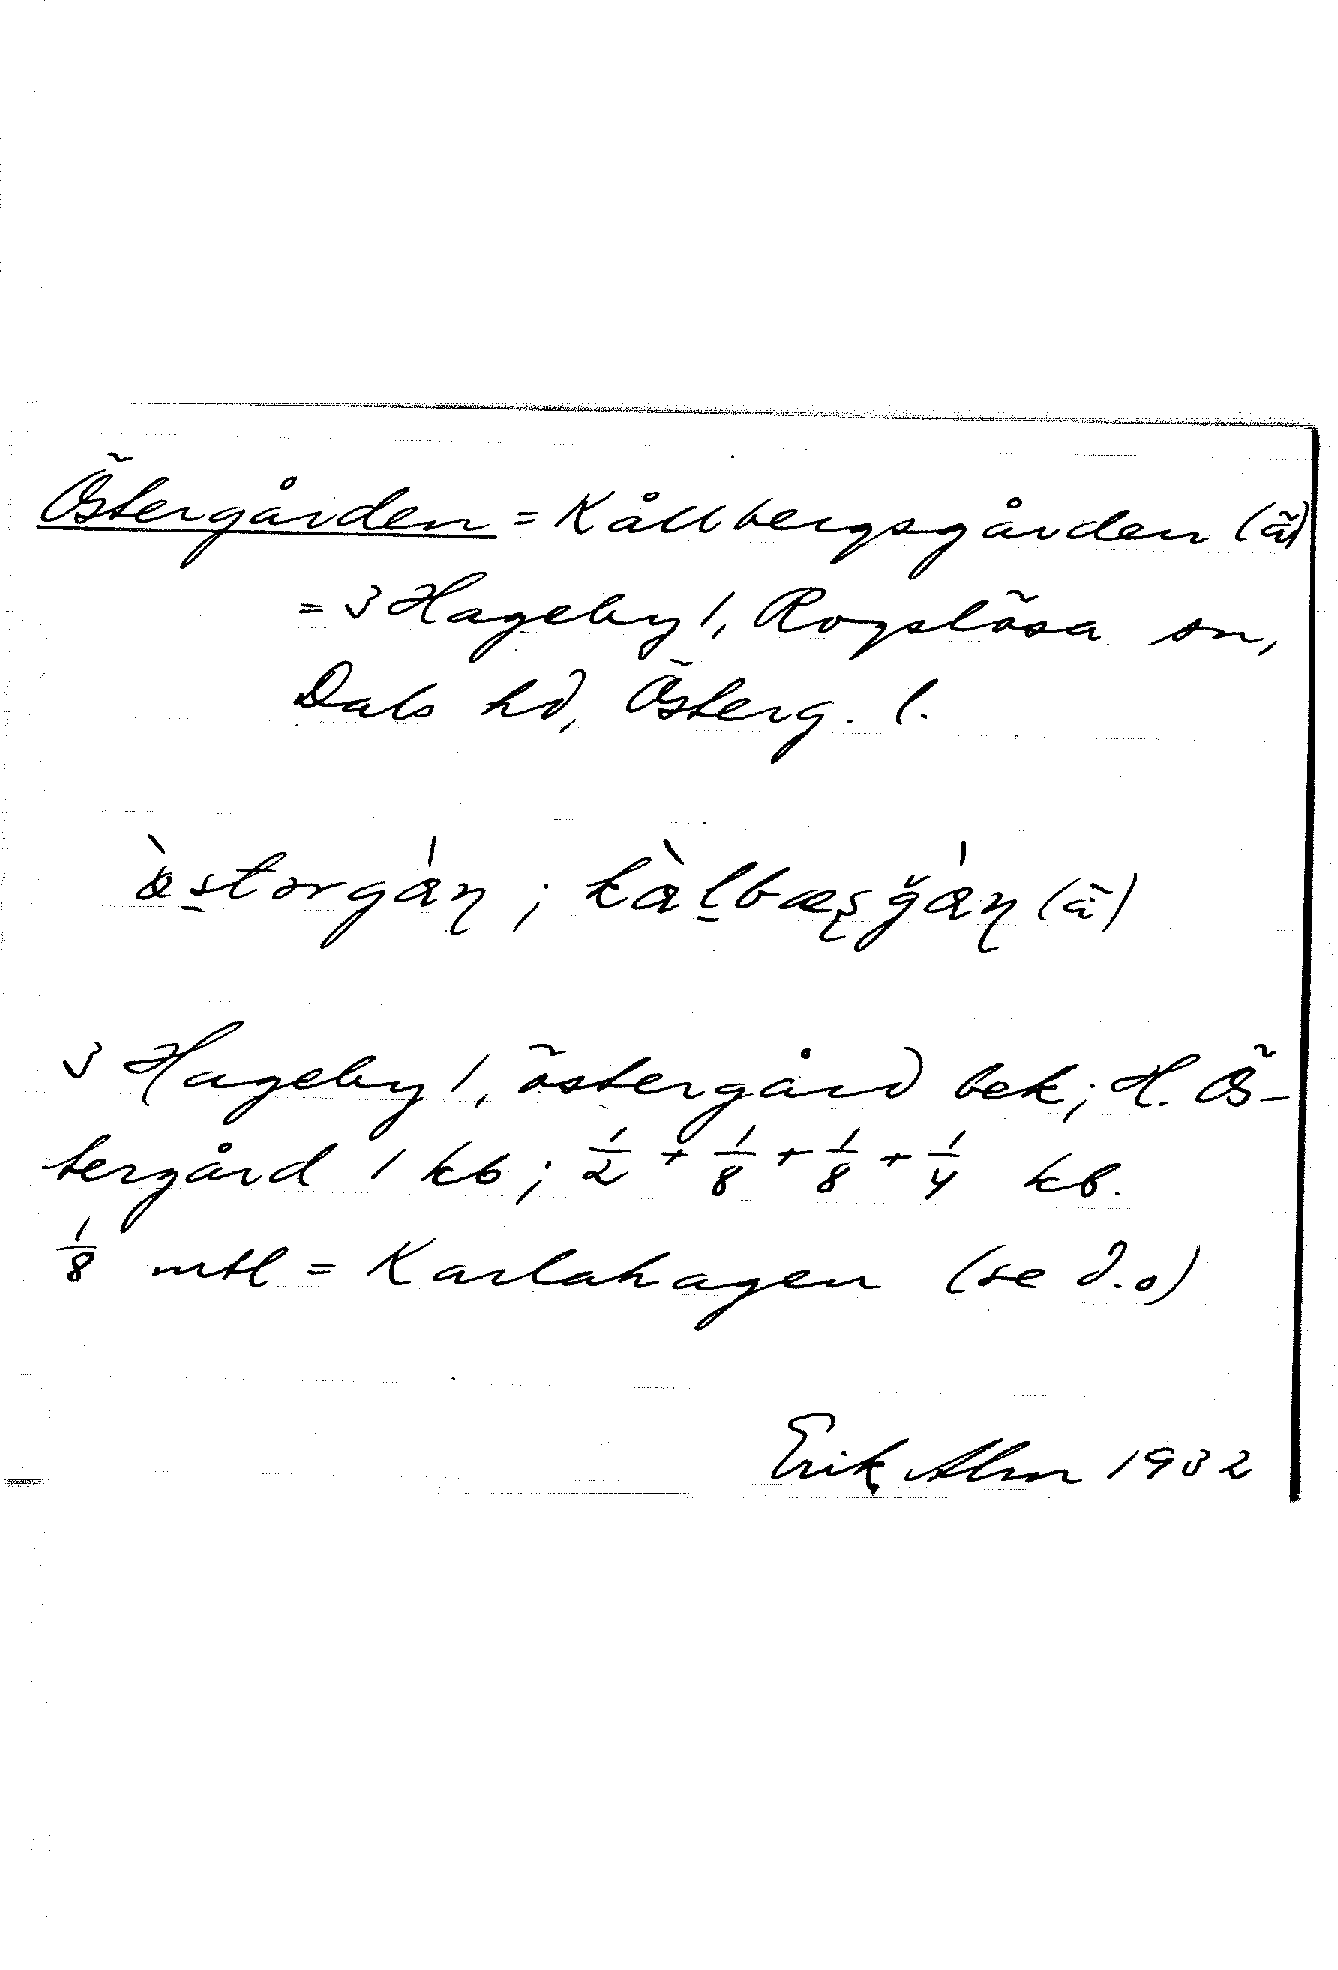 Östergården = Kållbergsgården (ä)
= 3 Hageby 1, Rogslösa sn,
Dals hd, Österg. l.
; (ä)
3 Hageby 1, östergård bek; H. Ös-
tergård 1 kb; 1/2 + 1/8 + 1/8 + 1/4 kb.
1/8 mtl = Karlahagen (se d.o)
Erik Alm 1932